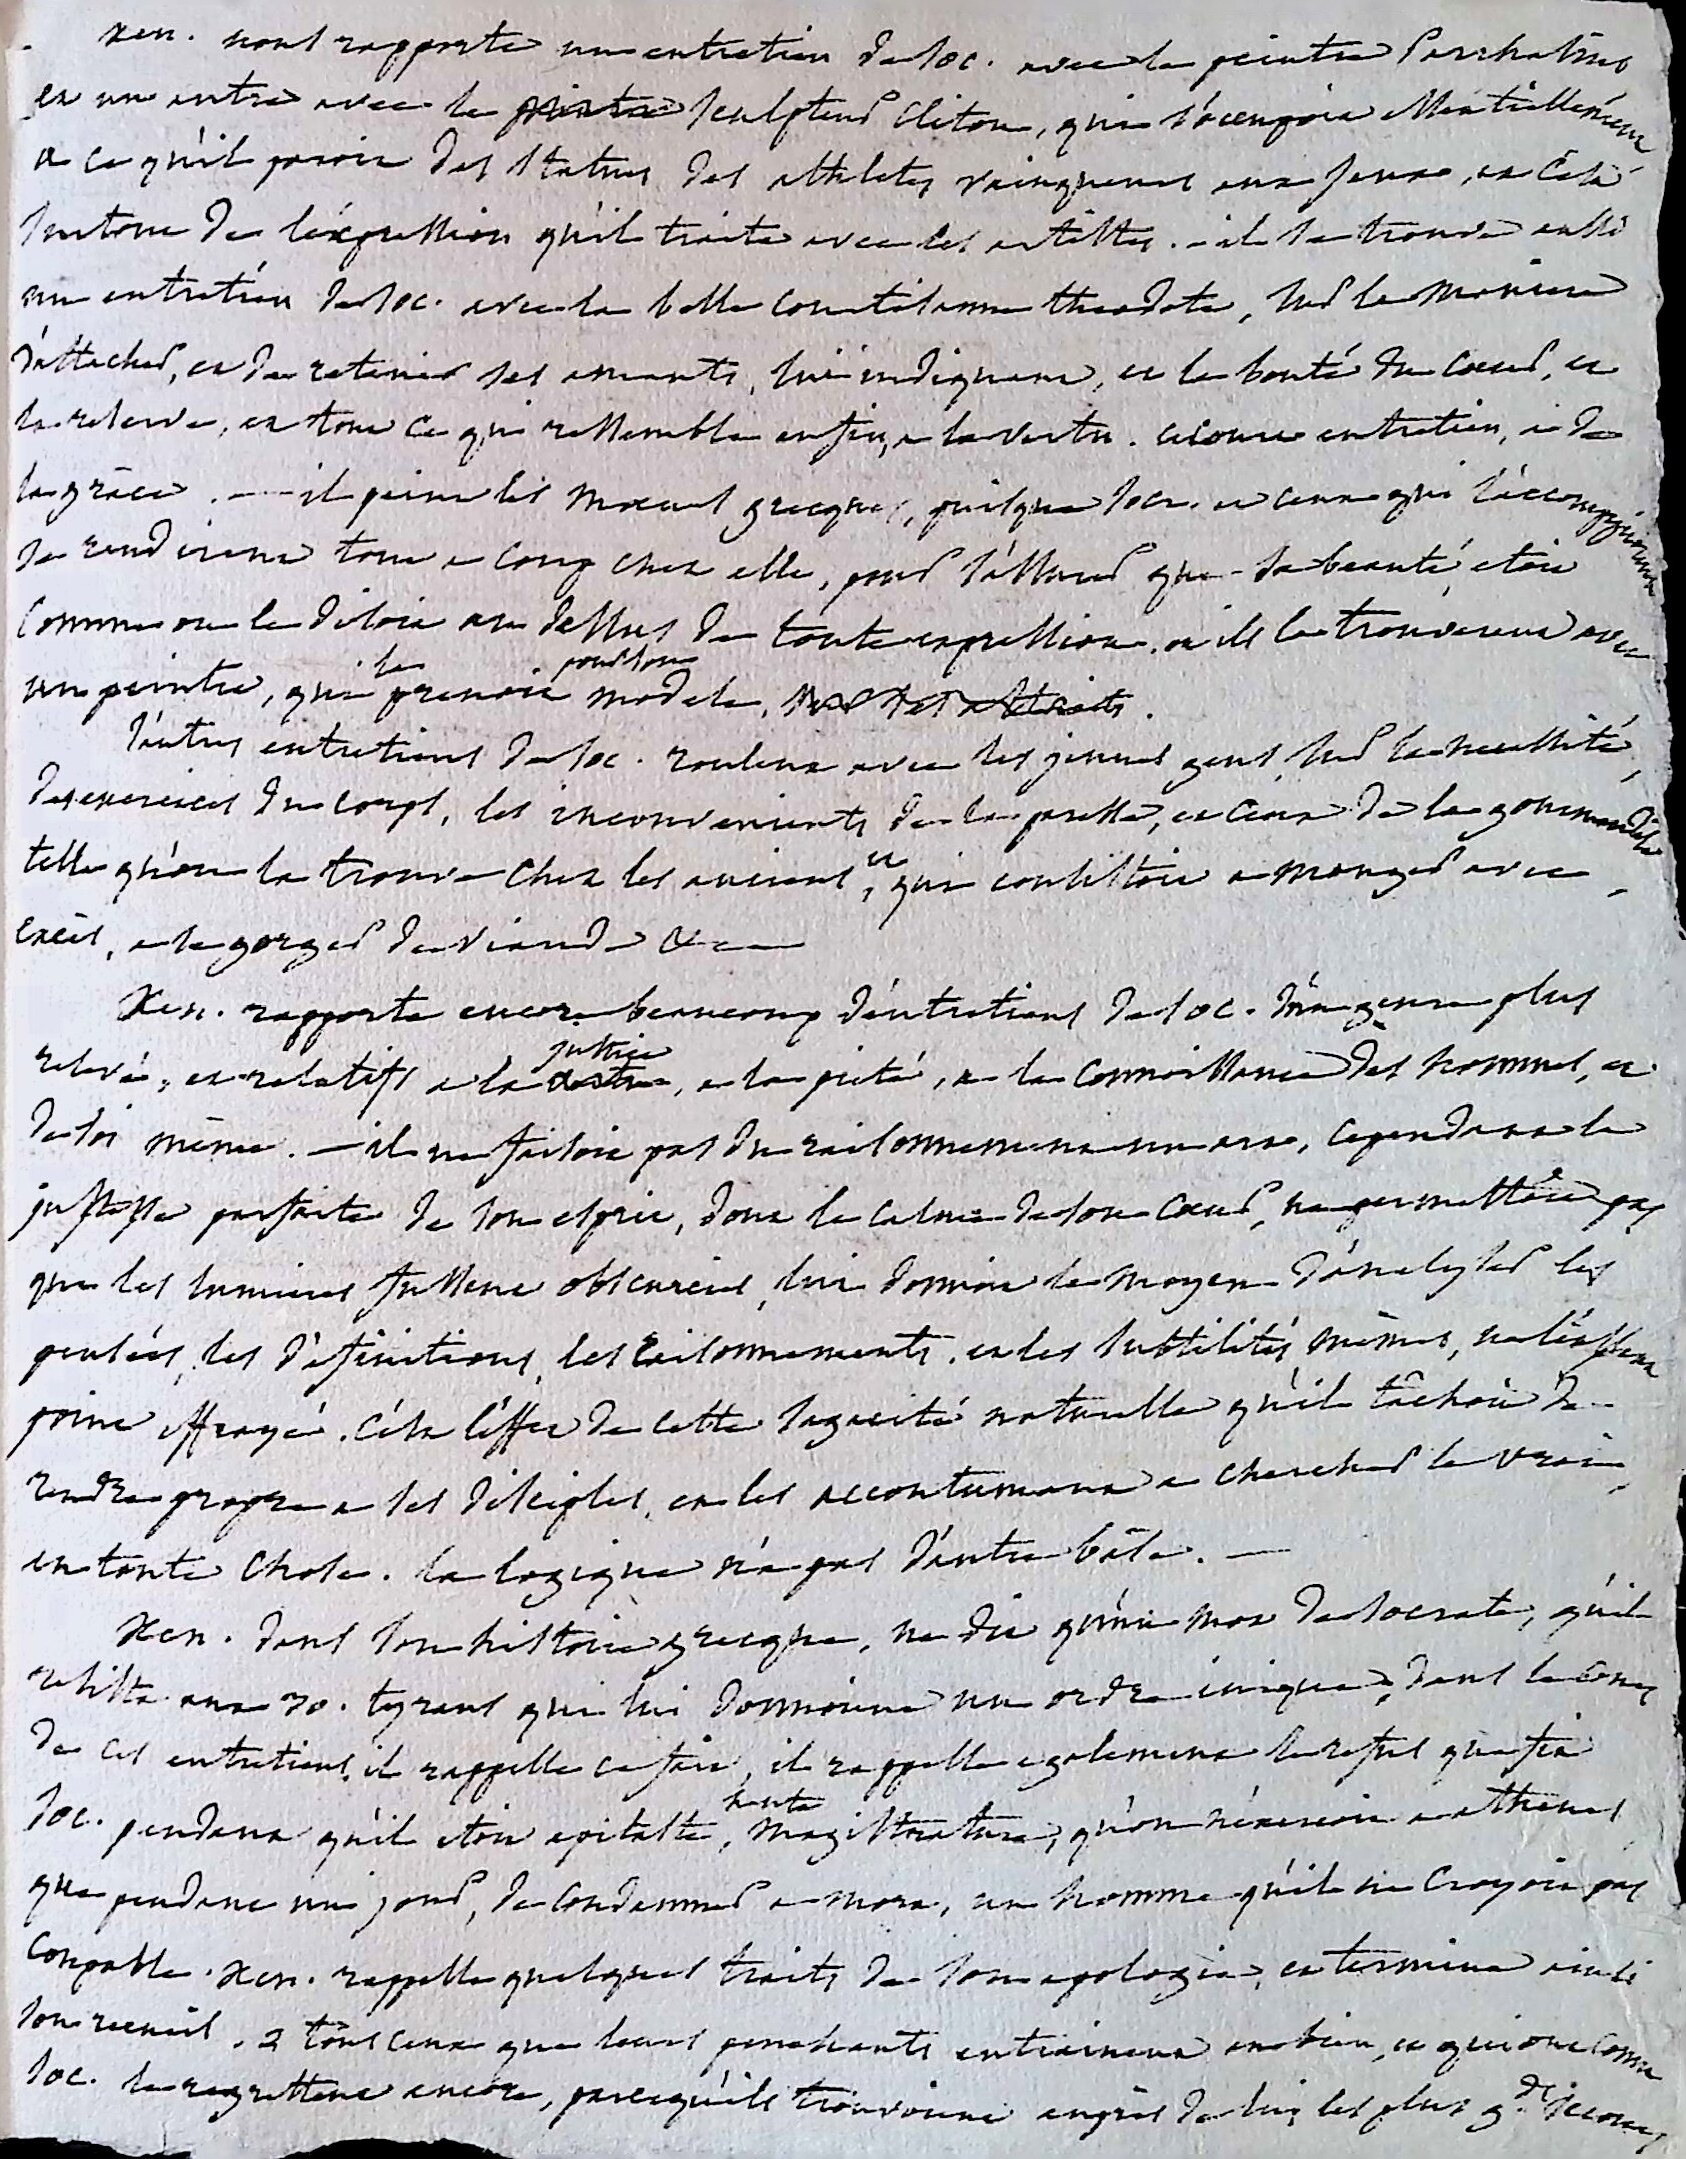 Xen. nous rapporte un entretien de Soc. avec le peintre Parrhasius
et un autre avec le peintre sculpteur Cliton, qui s'occupoit essentiellement
a ce qu'il paroit des statues des athletes vainqueurs aux jeux, et c'est
surtout de l'expression qu'il traite avec les artistes. - il se trouve aussi
un entretien de Soc. avec la belle courtisanne theodote, sur la maniere
d'attacher, et de retenir ses amants, lui indiquant, et la bonté du cœur, et
la reserve, et tout ce qui ressemble enfin, a la vertu. ce court entretien, a de
la grâce. — il peint les mœurs grecques, puisque Socr. et ceux qui l'accompagnoient
se rendirent tout a coup chez elle, pour s'assurer que sa beauté, etoit
comme on le disoit au dessus de toute expression. et ils la trouverent avec
un peintre, qui la prenoit pour son modele, sur ses attraits.
d'autres entretiens de Soc. roulent avec les jeunes gens, sur la necessité,
des exercices du corps, les inconvenients de la paresse, et ceux de la gourmandise
telle qu'on la trouve chez les anciens, et qui consistoit a manger avec
excès, a se gorger de viande &c —
Xen. rapporte encore beaucoup d'entretiens de Soc. d'un genre plus
relevé, et relatifs a la vertu justice, a la pieté, a la connoissance des hommes, et
de soi même. — il ne faisoit pas du raisonnement un art, cependant la
justesse parfaite de son esprit, dont le calme de son cœur, ne permettoit pas
que les lumieres fussent obscurcies, lui donnoit le moyen d'analyser les
pensées, les définitions, les raisonnements. et les subtilités mêmes, ne l'eussent
point effrayé. c'est l'effet de cette sagacité naturelle qu'il tâchoit de
rendre propre a ses disciples, en les accoutumant a chercher le vrai,
en toute chose. la logique n'a pas d'autre base. —
Xen. dans son histoire grecque, ne dit qu'un mot de Socrate, qu'il
resista aux 30. tyrans qui lui donnoient un ordre inique, dans le cours
de ces entretiens, il rappelle ce fait, il rappelle egalement le refus que fit
Soc. pendant qu'il etoit epistate, haute magistrature, qu'on n'exercoit a athenes
que pendant un jour, de condamner a mort, un homme qu'il ne croyoit pas
coupable. Xen. rappelle quelques traits de son apologie, et termine ainsi
son recueil. " tous ceux que leurs penchants entrainent au bien, et qui ont connu
Soc. le regrettent encore, parcequ'ils trouvoient auprès de lui, les plus g.ds secours